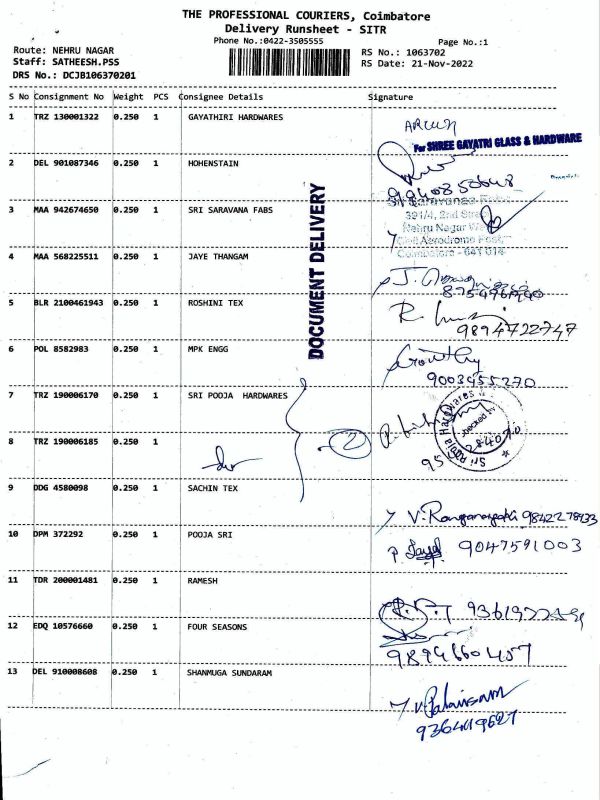 THE PROFESSIONAL COURIERS, Coimbatore
Delivery Runsheet - SITR
Phone No.:0422-3505555 Page No.:1
Route: NEHRU NAGAR RS No.: 1063702
Staff: SATHEESH.PSS RS Date: 21-Nov-2022
DRS No.: DCJB106370201
S No Consignment No Weight PCS Consignee Details Signature
1 TRZ 130001322 0.250 1 GAYATHIRI HARDWARES
ARUN
For SHREE GAYATRI GLASS & HARDWARE
2 DEL 901087346 0.250 1 HOHENSTAIN
3 MAA 942674650 0.250 1 SRI SARAVANA FABS
Sri Saravanaa Fabs
391/4, 2nd Street
Nehru Nagar West
Civil Aerodrome Post
Coimbatore - 641 014
DOCUMENT DELIVERY
4 MAA 568225511 0.250 1 JAYE THANGAM
5 BLR 2100461943 0.250 1 ROSHINI TEX
9894722747
6 POL 8582983 0.250 1 MPK ENGG
9003455270
7 TRZ 190006170 0.250 1 SRI POOJA HARDWARES
Sri Pooja Hardwares
2
8 TRZ 190006185 0.250 1
9 DDG 4580098 0.250 1 SACHIN TEX
9842278433
10 DPM 372292 0.250 1 POOJA SRI
9047591003
11 TDR 200001481 0.250 1 RAMESH
12 EDQ 10576660 0.250 1 FOUR SEASONS
9894660457
13 DEL 910008608 0.250 1 SHANMUGA SUNDARAM